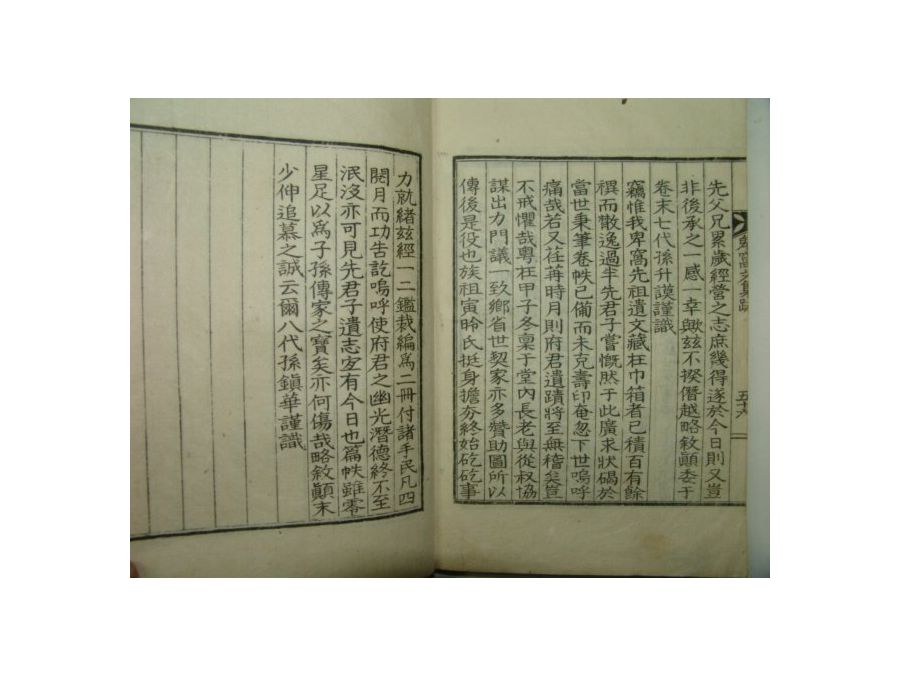 先父兄累歲經營之志庶幾得遂於今日則又豈
非後承之一感一幸歟玆不揆僭越略敘顚委于
卷末七代孫升謨謹識
竊惟我卑窩先祖遺文藏在巾箱者已積百有餘
禩而散逸過半先君子嘗慨然于此廣求狀碣於
當世秉筆卷帙已備而未克壽印奄忽下世嗚呼
痛哉若又荏苒時月則府君遺蹟將至無稽矣豈
不戒懼哉粤在甲子冬稟于堂內長老與從叔協
謀出力門議一致鄕省世契家亦多贊助圖所以
傳後是役也族祖寅昤氏挺身擔夯終始矻矻事
窩文集跋
五十六
力就緖玆經一二鑑裁編爲二冊付諸手民凡四
閱月而功告訖嗚呼使府君之幽光潛德終不至
泯沒亦可見先君子遺志定有今日也篇帙雖零
星足以爲子孫傳家之寶矣亦何傷哉略敘顚末
少伸追慕之誠云爾八代孫鎭華謹識